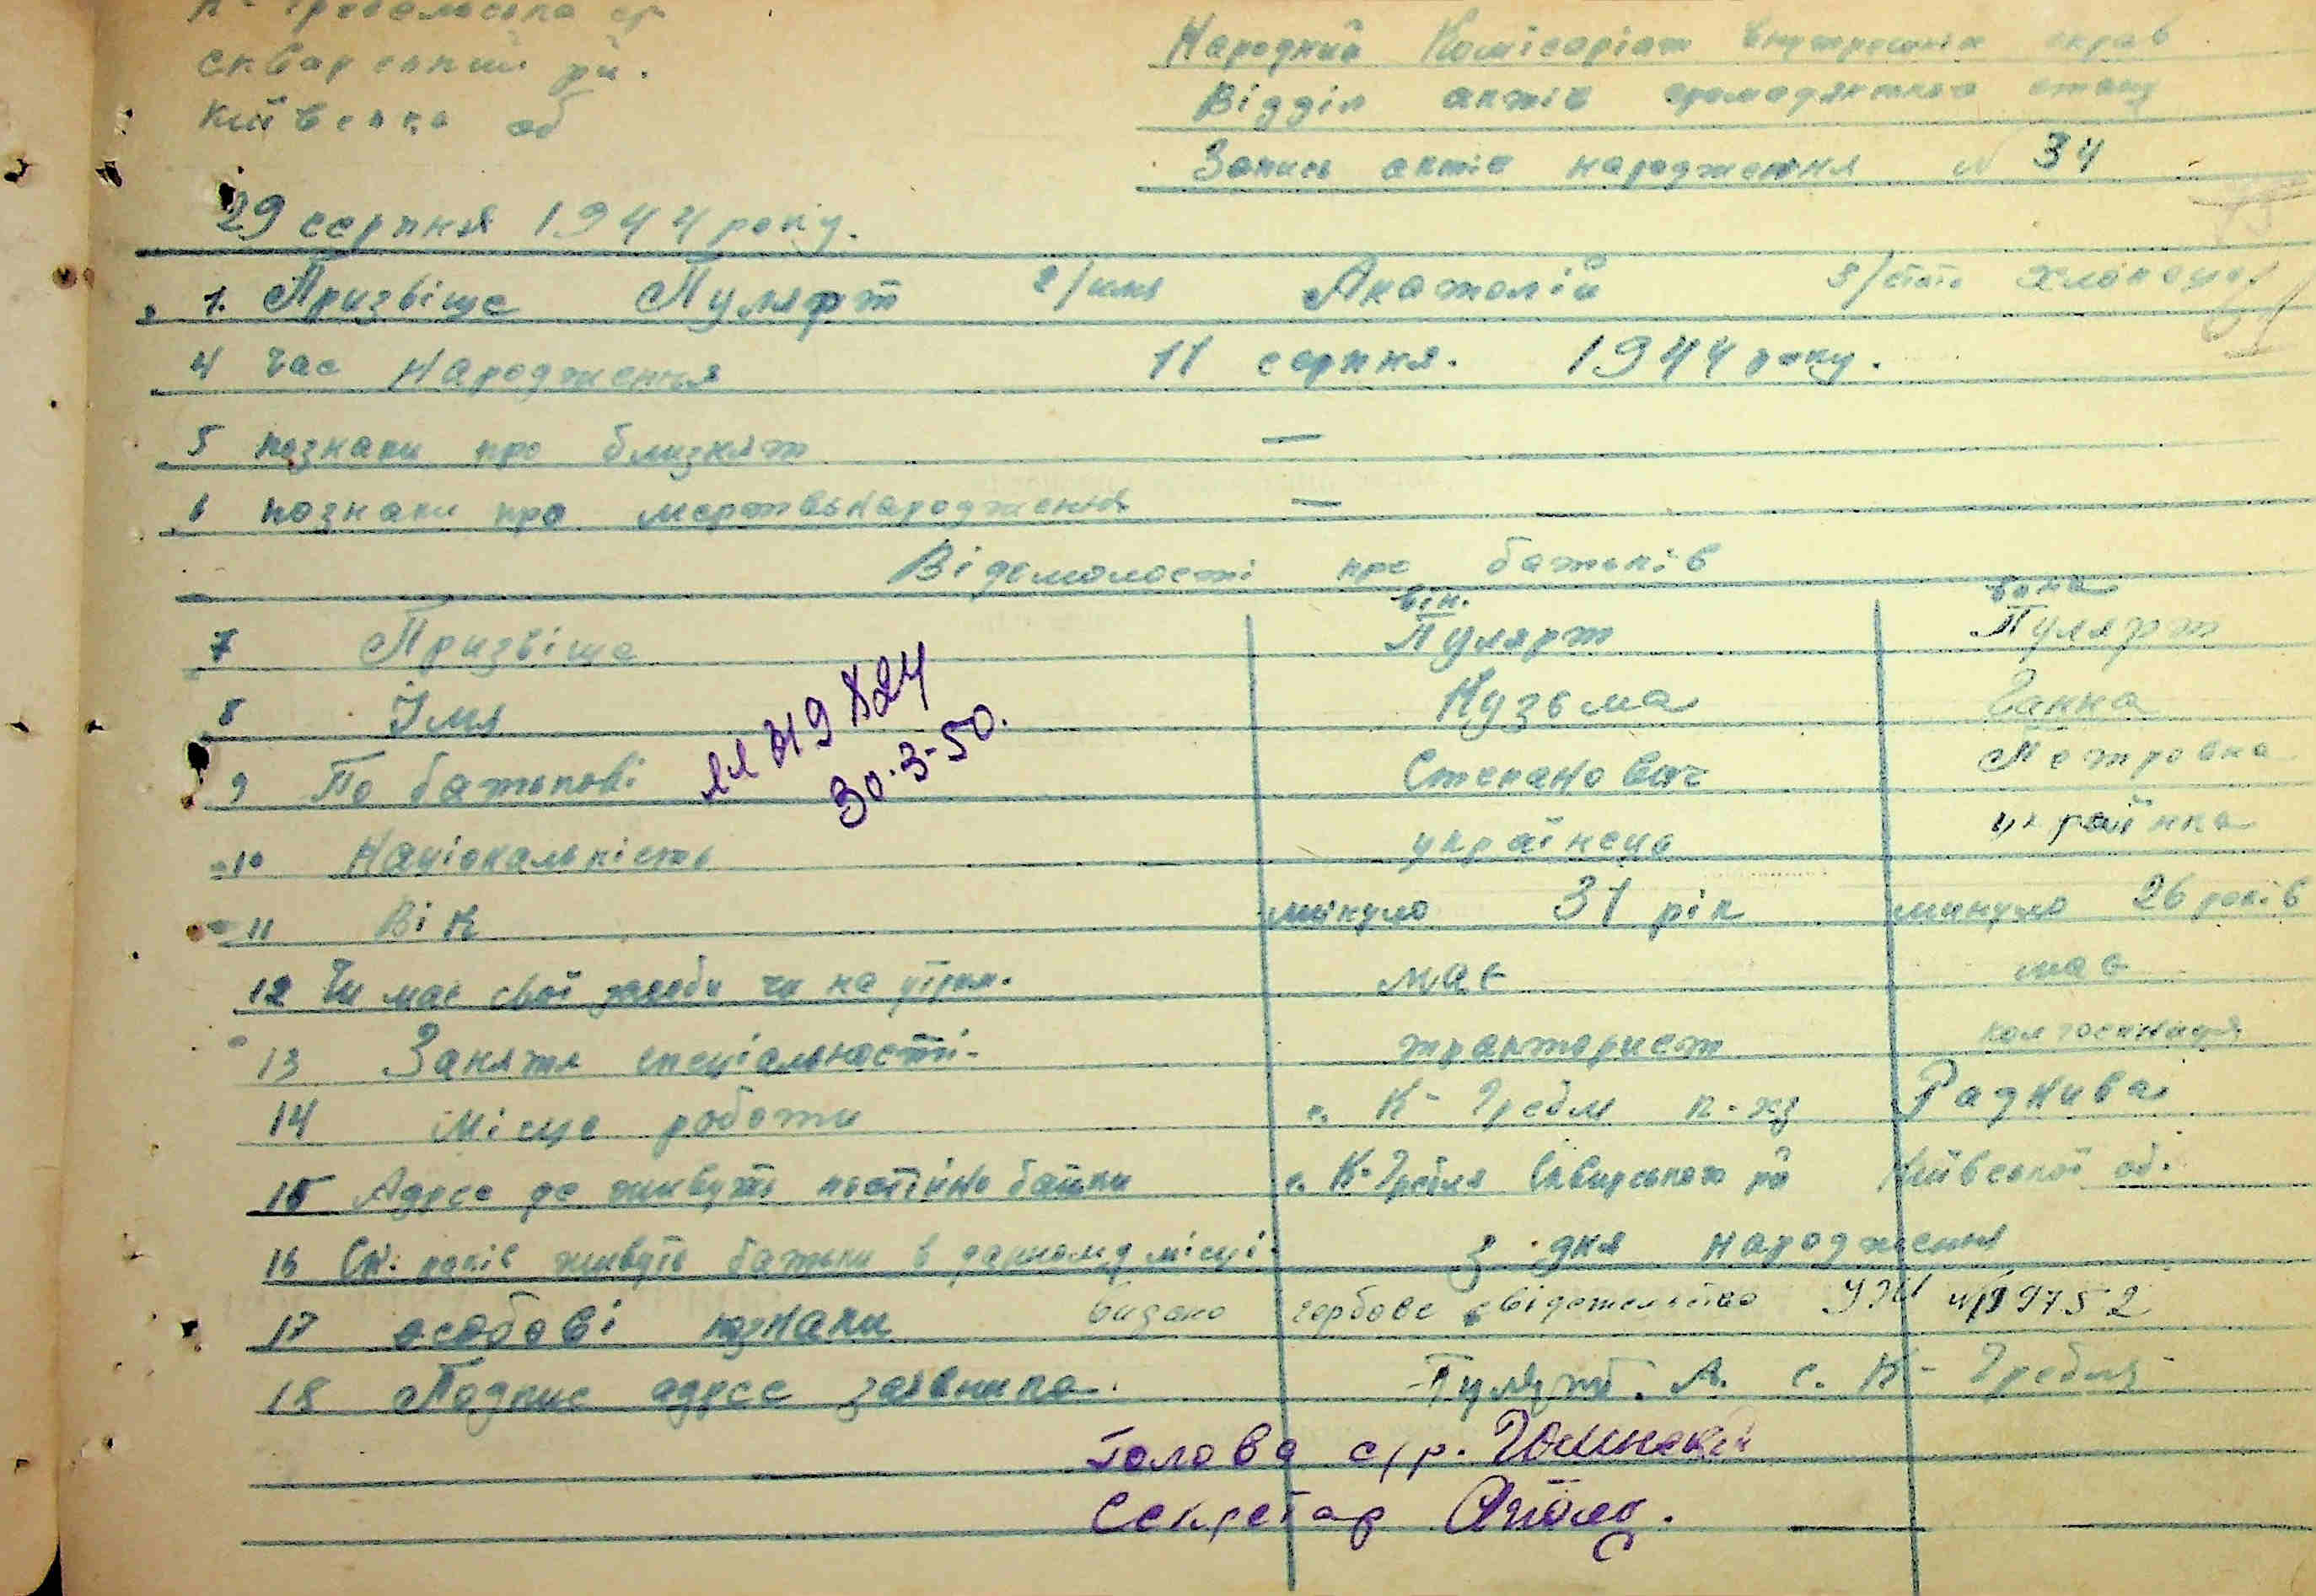 К-Гребельська ср
сквирський рн.
Київська об
Народний Комісаріат Внутрешніх справ
Відділ актів громадянського стану
Запись актів народження № 34
29 серпня 1944 року.
1. Призвіще Пулярт 2/імя Анатолій 3/стать хлопець
4 час народження 11 серпня. 1944 року.
5 познаки про близнят —
6 познаки про мертвьнародження —
Відомолості про батьків
він. вона
7 Призвіще Пулярт Пулярт
8 Імя Кузьма Ганна
9 По батькові Степанович Петровна
10 Національність українець українка
11 Вік минуло 31 рік минуло 26 років
12 Чи має свої засоби чи на утрим. має має
13 Заняття спеціальності. тракторист колгоспниця
14 Місце роботи с. К-Гребля к-хз Раднива
15 Адреса де живуть постійно батьки с. К-Гребля Сквирського рн Київської об.
16 Ск: років живуть батьки в данному місці. З дня народження
17 особові познаки видано гербове свідотельство УЖ № 19752
18 Подпис адреса заявника. Пулярт. А. с. К-Гребля
319824
30.3-50.
Голова с/р.
Секретар